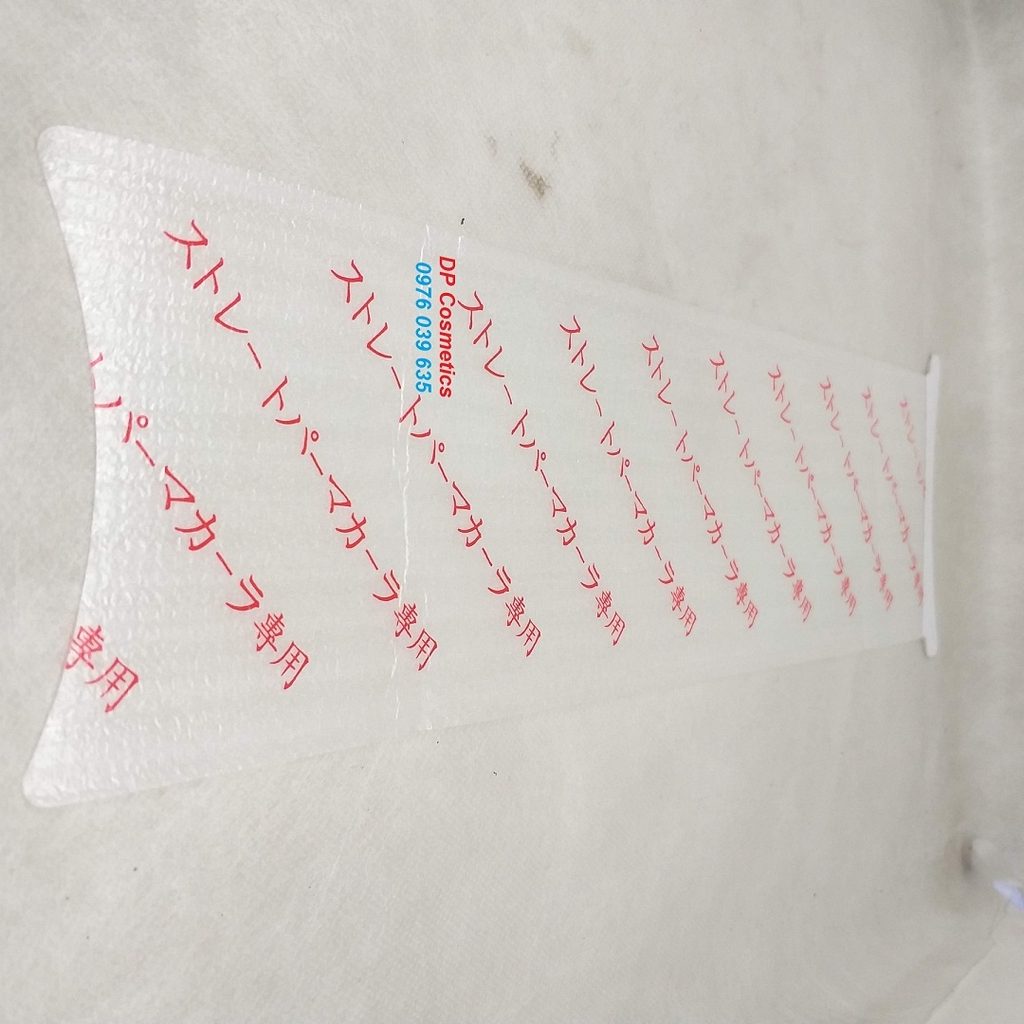 ストレートパーマカーラ専用
ストレートパーマカーラ専用
ストレートパーマカーラ専用
ストレートパーマカーラ専用
ストレートパーマカーラ専用
ストレートパーマカーラ専用
DP Cosmetics
0976 039 635
ストレートパーマカーラ専用
ストレートパーマカーラ専用
トパーマカーラ専用
専用